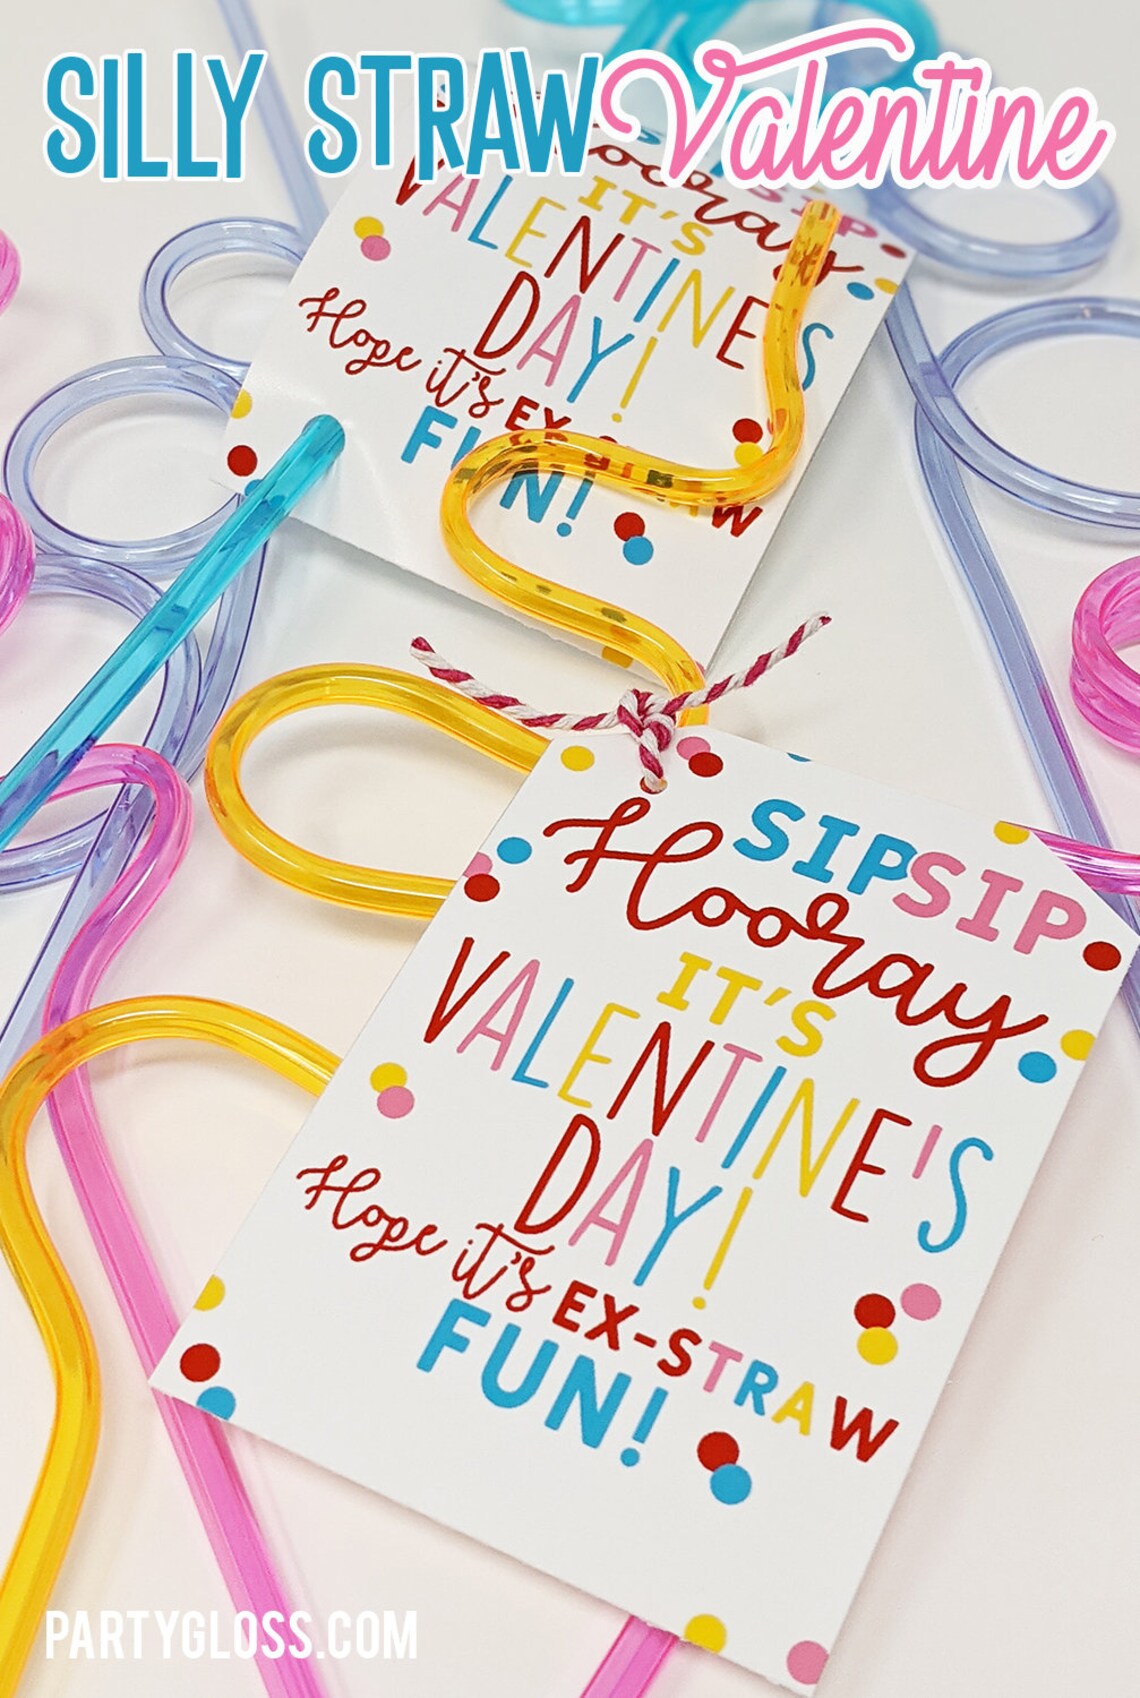 SILLY STRAW Valentine
Hooray
SIP
IT'S
VALENTINE'S
DAY!
Hope it's EX-STRAW
FUN!
SIP SIP
Hooray
IT'S
VALENTINE'S
DAY!
Hope it's EX-STRAW
FUN!
PARTYGLOSS.COM